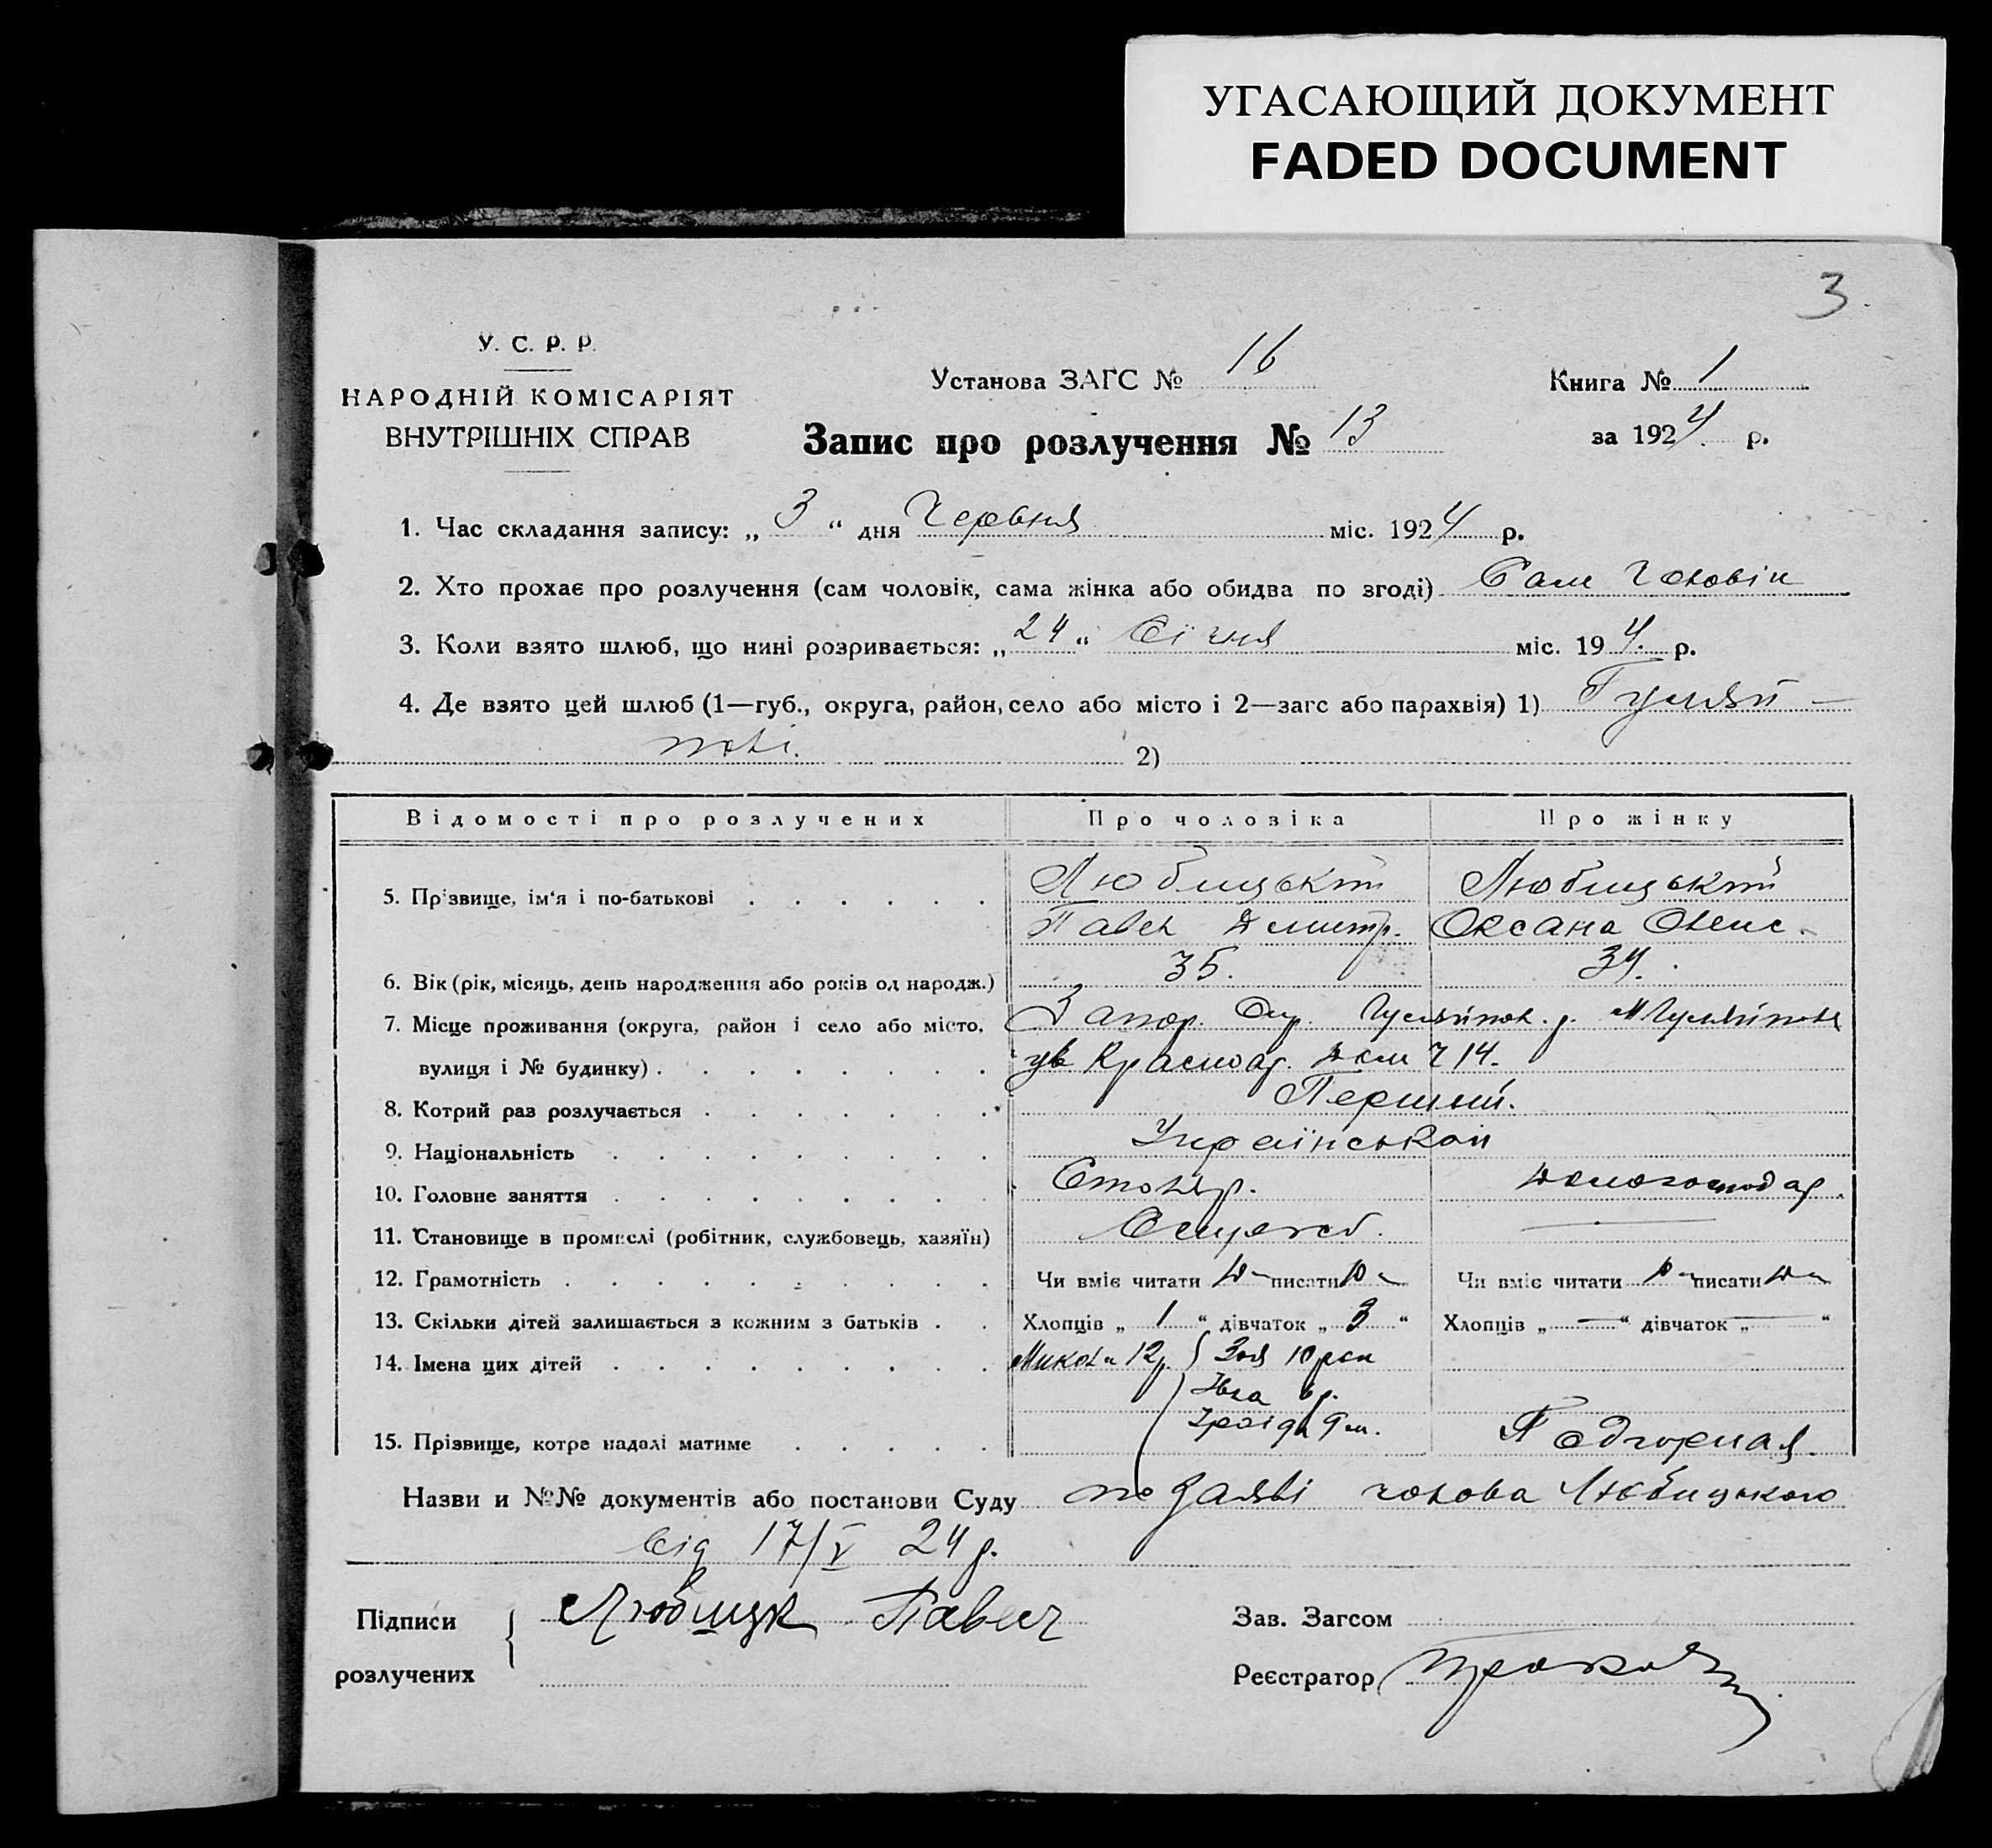 УГАСАЮЩИЙ ДОКУМЕНТ
FADED DOCUMENT
3
У. С. Р. Р.
НАРОДНІЙ КОМІСАРІЯТ
ВНУТРІШНІХ СПРАВ
Установа ЗАГС № 16
Книга № 1
Запис про розлучення № 13
за 1924 р.
1. Час складання запису: „ 3 “ дня Червня міс. 1924 р.
2. Хто прохає про розлучення (сам чоловік, сама жінка або обидва по згоді) Сам Чоловік
3. Коли взято шлюб, що нині розривається: „ 24 “ Січня міс. 194. р.
4. Де взято цей шлюб (1—губ., округа, район, село або місто і 2—загс або парахвія) 1) Гуляй-
полі. 2)
Відомості про розлучених Про чоловіка Про жінку
5. Прізвище, ім'я і по-батькові Любицький Любицький
Павел Дмитр. Оксана Олекс.
6. Вік (рік, місяць, день народження або років од народж.) 35. 34.
7. Місце проживання (округа, район і село або місто, Запор. Окр. Гуляйпол. р. м Гуляйполе
вулиця і № будинку) ул Красноар. дом Ч 14.
8. Котрий раз розлучається Первый.
9. Національність Української
10. Головне заняття Столяр. домогосподар.
11. Становище в промислі (робітник, службовець, хазяїн) —
12. Грамотність Чи вміє читати писати Чи вміє читати писати
13. Скільки дітей залишається з кожним з батьків Хлопців „ 1 “ дівчаток „ 3 “ Хлопців „ — “ дівчаток „ — “
14. Імена цих дітей Микола 12р. Зоя 10 рок
6 р.
9 м.
15. Прізвище, котре надалі матиме Подгорная.
Назви и №№ документів або постанови Суду по заяві чолова Любицького
від 17/V 24 р.
Підписи Любицк Павел Зав. Загсом
розлучених Реєстратор